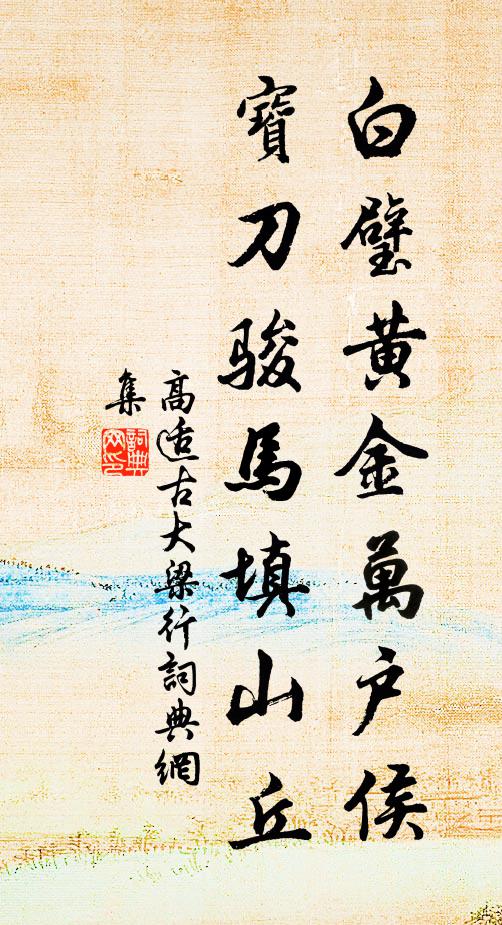 白璧黃金萬户侯
寶刀駿馬填山丘
高适古大梁行詞典網
集
詞典
网印